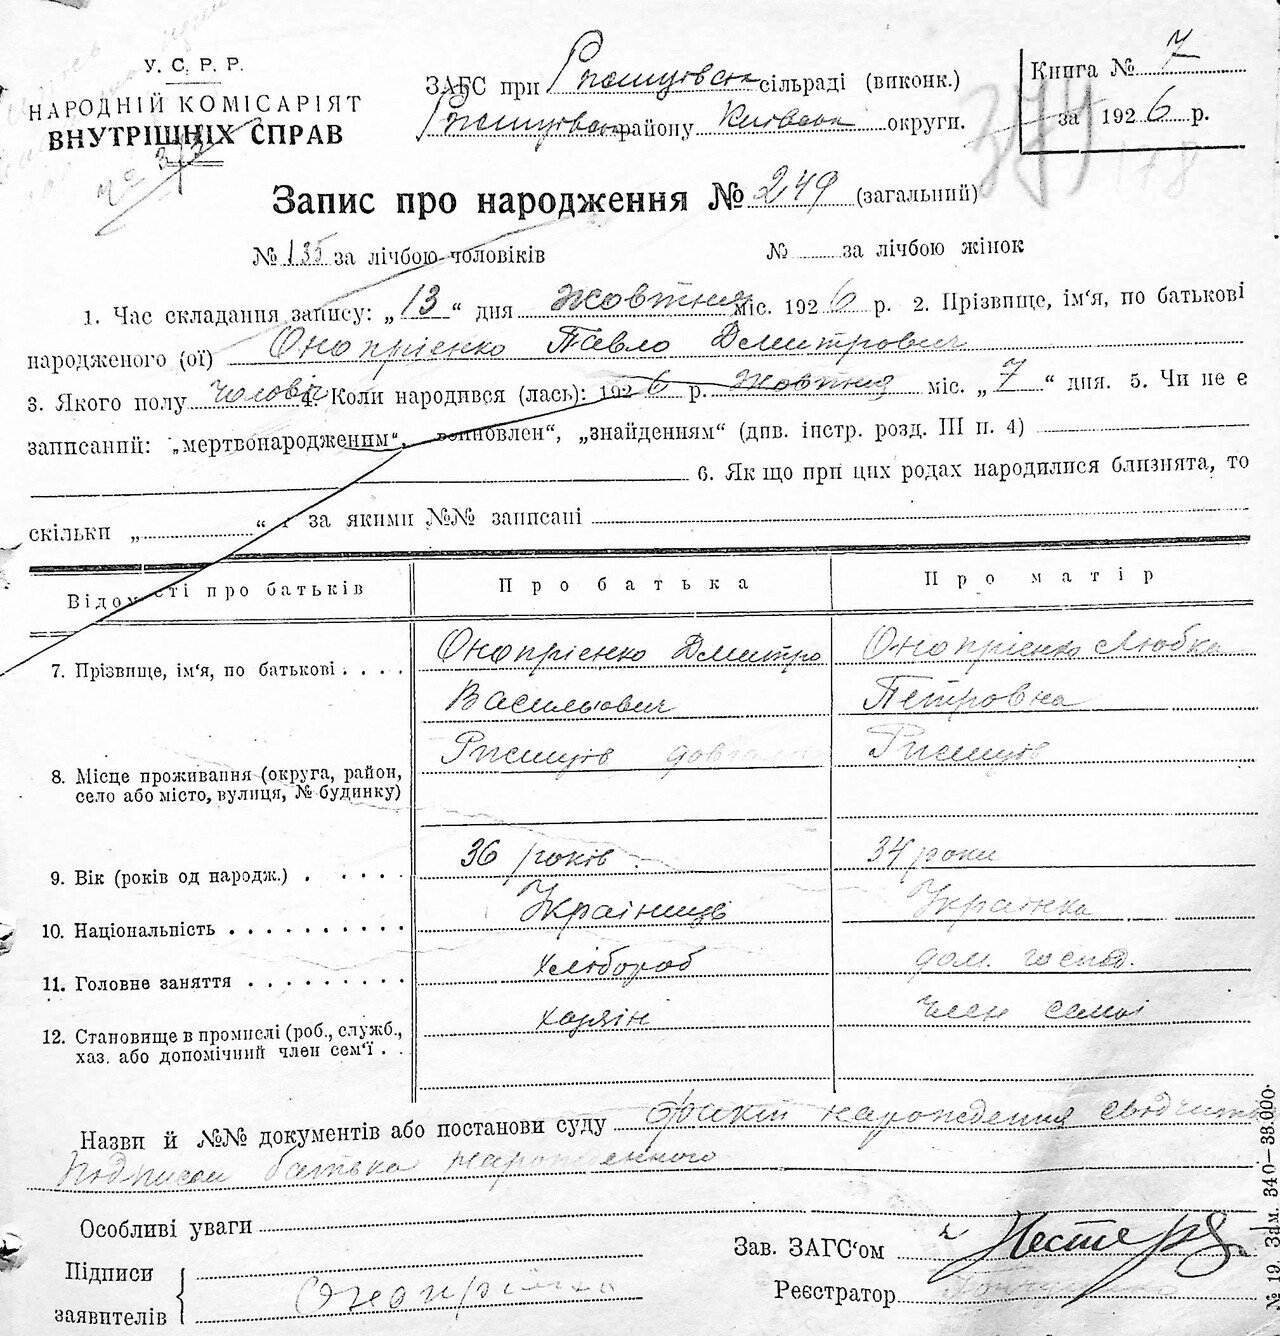 У. С. Р. Р.
НАРОДНІЙ КОМІСАРІЯТ
ВНУТРІШНІХ СПРАВ
ЗАГС при Ржищівськ сільраді (виконк.)
Ржищівськ району Київськ округи.
Книга № 7
за 1926 р.
344
178
Запис про народження № 249 (загальний)
№ 135 за лічбою чоловіків № за лічбою жінок
1. Час складання запису: „13“ дня Жовтня міс. 1926 р. 2. Прізвище, ім‘я, по батькові
народженого (ої) Онопрієнко Павло Дмитрович
3. Якого полу чоловіч 4. Коли народився (лась): 1926 р. Жовтня міс. „7“ дня. 5. Чи не є
записаний: „мертвонародженим“, „ “, „знайденням“ (див. інстр. розд. III п. 4)
6. Як що при цих родах народилися близнята, то
скільки „ “ і за якими №№ записані
Відомості про батьків Про батька Про матір
7. Прізвище, ім‘я, по батькові Онопрієнко Дмитро Онопрієнко Любка
Васильович Петровна
8. Місце проживання (округа, район, Ржищів Ржищів
село або місто, вулиця, № будинку)
9. Вік (років од народж.) 36 років 34 роки
10. Національність Українець Українка
11. Головне заняття хлібороб дом. господ.
12. Становище в промислі (роб., служб., хазяін член семьі
хаз. або допомічний член сем‘ї
Назви й №№ документів або постанови суду факт народження сводчить
подписом батька народженного
Особливі уваги
Зав. ЗАГС‘ом
Підписи
заявителів Онопрієнко
Реєстратор
№ 19. Зам. 340—38.000.